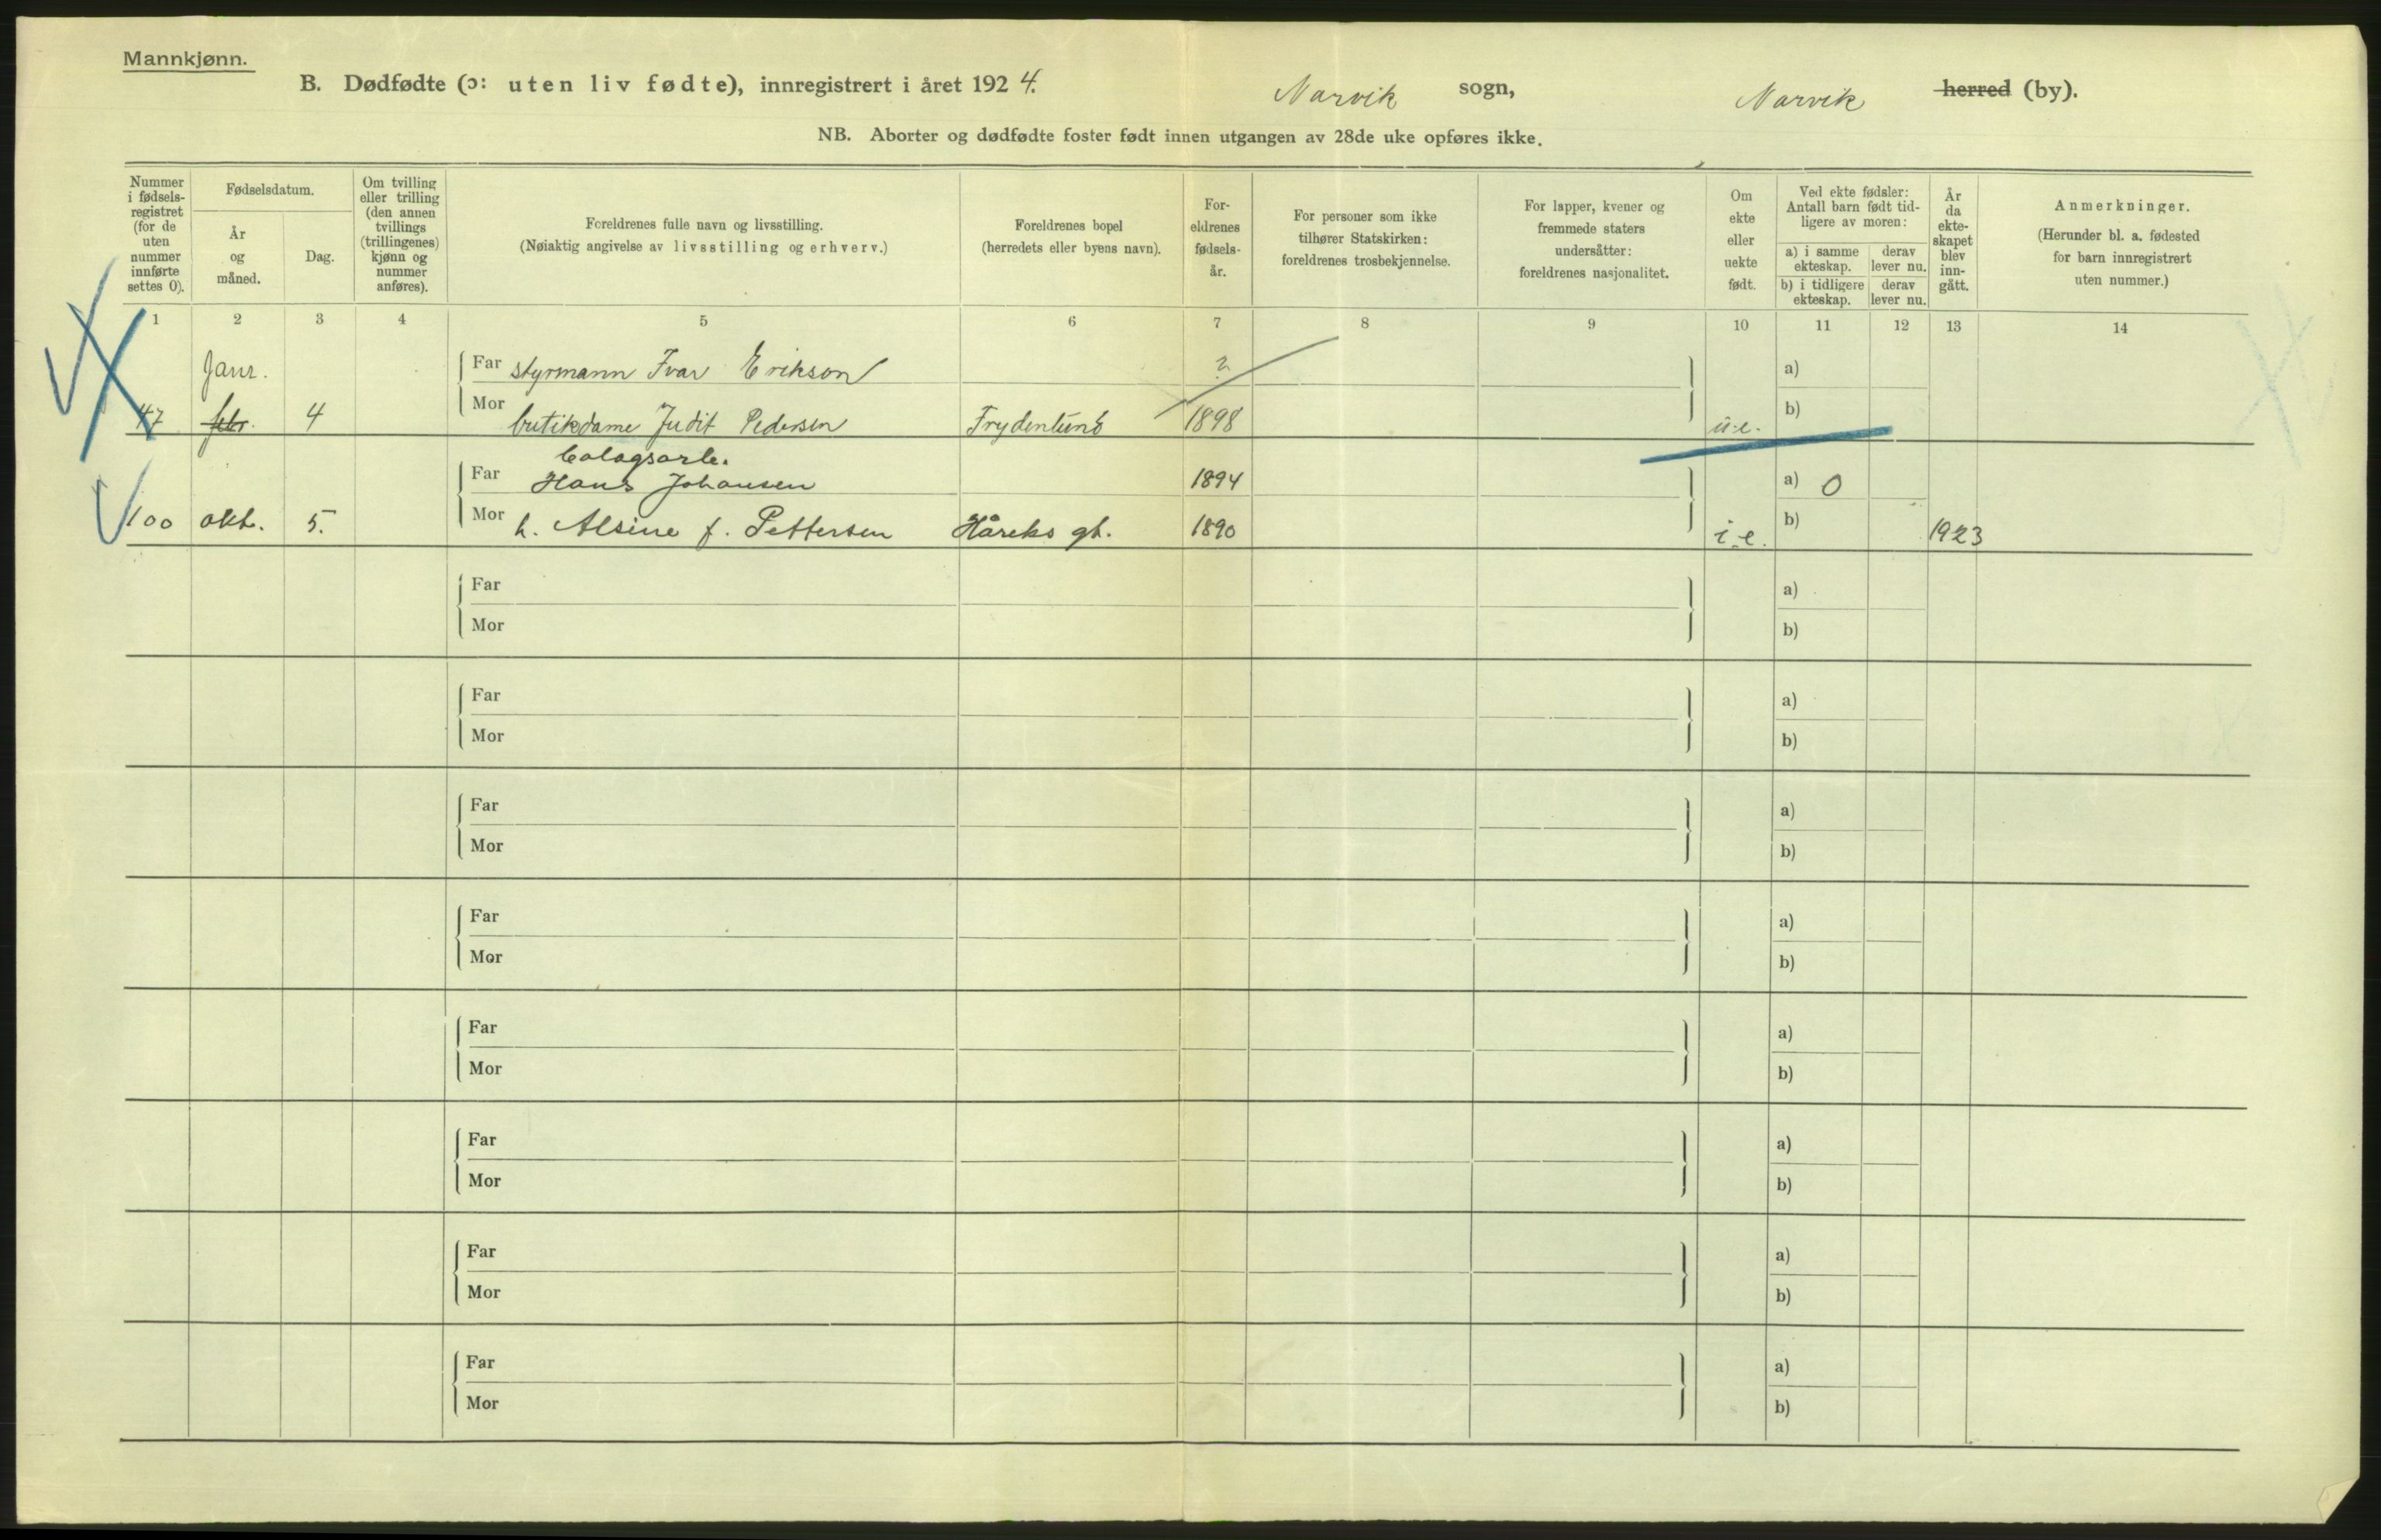 Mannkjønn.
B. Dødfødte (ɔ: uten liv fødte), innregistrert i året 1924. Narvik sogn, Narvik herred (by).
NB. Aborter og dødfødte foster født innen utgangen av 28de uke opføres ikke.
Nummer i fødsels-registret (for de uten nummer innførte settes 0).
Fødselsdatum.
År og måned.
Dag.
Om tvilling eller trilling (den annen tvillings (trillingenes) kjønn og nummer anføres).
Foreldrenes fulle navn og livsstilling.
(Nøiaktig angivelse av livsstilling og erhverv.)
Foreldrenes bopel
(herredets eller byens navn).
For-eldrenes fødsels-år.
For personer som ikke
tilhører Statskirken:
foreldrenes trosbekjennelse.
For lapper, kvener og
fremmede staters
undersåtter:
foreldrenes nasjonalitet.
Om ekte eller uekte født.
Ved ekte fødsler:
Antall barn født tid-
ligere av moren:
a) i samme ekteskap.
derav lever nu.
b) i tidligere ekteskap.
derav lever nu.
År da ekte-skapet blev inn-gått.
Anmerkninger.
(Herunder bl. a. fødested
for barn innregistrert
uten nummer.)
1 2 3 4 5 6 7 8 9 10 11 12 13 14
Janr. Far styrmann Ivar Erikson ? a)
47 febr. 4 Mor butikdame Judit Pedersen Frydenlund 1898 u.e. b)
bolagsarb.
Far Hans Johansen 1894 a) 0
100 okt. 5. Mor h. Alsine f. Pettersen Håreks gt. 1890 i.e. b) 1923
Far a)
Mor b)
Far a)
Mor b)
Far a)
Mor b)
Far a)
Mor b)
Far a)
Mor b)
Far a)
Mor b)
Far a)
Mor b)
Far a)
Mor b)